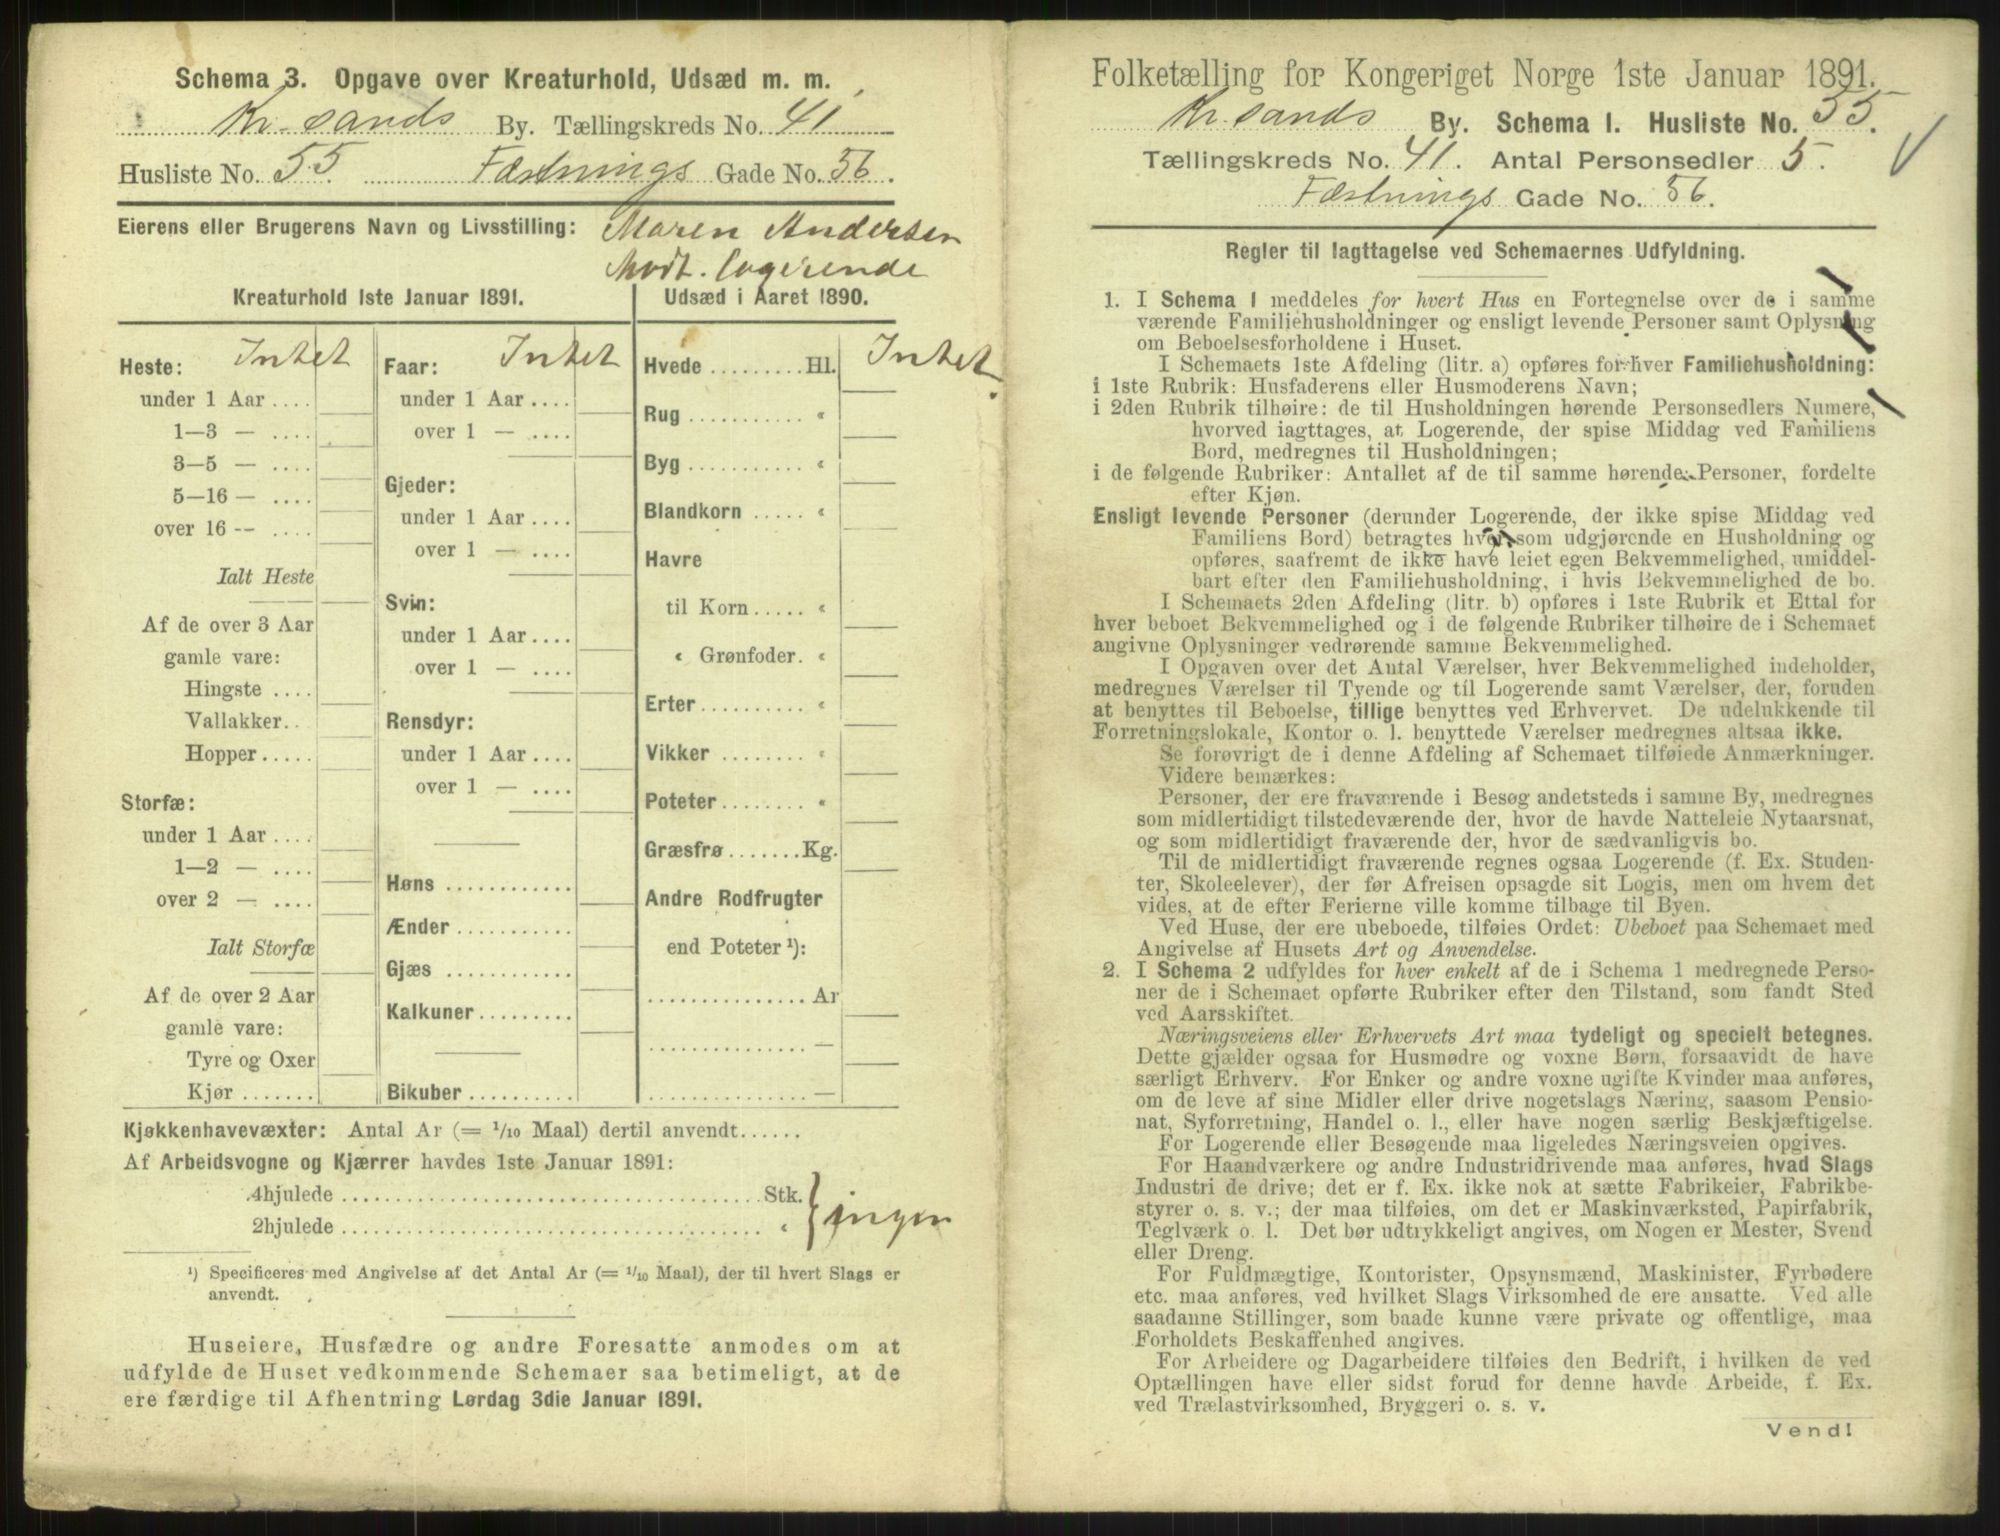 Schema 3. Opgave over Kreaturhold, Udsæd m. m.
Kr.sands By. Tællingskreds No. 41
Husliste No. 55. Fæstnings Gade No. 56.
Eierens eller Brugerens Navn og Livsstilling: Maren Andersen
Modt. logerende
Kreaturhold 1ste Januar 1891.
Heste: Intet
under 1 Aar ....
1—3 — ....
3—5 — ....
5—16 — ....
over 16 -- ....
Ialt Heste
Af de over 3 Aar
gamle vare:
Hingste ....
Vallakker..
Hopper.....
Storfæ:
under 1 Aar ....
1—2 — ....
over 2 — ....
Ialt Storfæ
Af de over 2 Aar
gamle vare:
Tyre og Oxer
Kjør .......
Faar: Intet
under 1 Aar ....
over 1 — ....
Gjeder:
under 1 Aar....
over 1 — ....
Svin:
under 1 Aar....
over 1 — ....
Rensdyr:
under 1 Aar....
over 1 — ....
Høns ............
Ænder ...........
Gjæs ............
Kalkuner.........
Bikuber ..........
Udsæd i Aaret 1890.
Hvede .........Hl. Intet.
Rug ........... «
Byg ........... «
Blandkorn ..... «
Havre
til Korn..... «
« Grønfoder. «
Erter.......... «
Vikker ........ «
Poteter........ «
Græsfrø .......Kg.
Andre Rodfrugter
end Poteter ¹):
...............Ar
............... —
............... —
Kjøkkenhavevæxter: Antal Ar (= 1/10 Maal) dertil anvendt......
Af Arbeidsvogne og Kjærrer havdes 1ste Januar 1891:
4hjulede ........................................ Stk. } ingen
2hjulede ........................................ «
¹) Specificeres med Angivelse af det Antal Ar (= 1/10 Maal), der til hvert Slags er
anvendt.
Huseiere, Husfædre og andre Foresatte anmodes om at
udfylde de Huset vedkommende Schemaer saa betimeligt, at de
ere færdige til Afhentning Lørdag 3die Januar 1891.
Folketælling for Kongeriget Norge 1ste Januar 1891.
Kr.sands By. Schema 1. Husliste No. 55.
Tællingskreds No. 41. Antal Personsedler 5.
Fæstnings Gade No. 56.
Regler til Iagttagelse ved Schemaernes Udfyldning.
1. I Schema 1 meddeles for hvert Hus en Fortegnelse over de i samme
værende Familiehusholdninger og ensligt levende Personer samt Oplysning
om Beboelsesforholdene i Huset.
I Schemaets 1ste Afdeling (litr. a) opføres for hver Familiehusholdning:
i 1ste Rubrik: Husfaderens eller Husmoderens Navn;
i 2den Rubrik tilhøire: de til Husholdningen hørende Personsedlers Numere,
hvorved iagttages, at Logerende, der spise Middag ved Familiens
Bord, medregnes til Husholdningen;
i de følgende Rubriker: Antallet af de til samme hørende Personer, fordelte
efter Kjøn.
Ensligt levende Personer (derunder Logerende, der ikke spise Middag ved
Familiens Bord) betragtes hver som udgjørende en Husholdning og
opføres, saafremt de ikke have leiet egen Bekvemmelighed, umiddel-
bart efter den Familiehusholdning, i hvis Bekvemmelighed de bo.
I Schemaets 2den Afdeling (litr. b) opføres i 1ste Rubrik et Ettal for
hver beboet Bekvemmelighed og i de følgende Rubriker tilhøire de i Schemaet
angivne Oplysninger vedrørende samme Bekvemmelighed.
I Opgaven over det Antal Værelser, hver Bekvemmelighed indeholder,
medregnes Værelser til Tyende og til Logerende samt Værelser, der, foruden
at benyttes til Beboelse, tillige benyttes ved Erhvervet. De udelukkende til
Forretningslokale, Kontor o. l. benyttede Værelser medregnes altsaa ikke.
Se forøvrigt de i denne Afdeling af Schemaet tilføiede Anmærkninger.
Videre bemærkes:
Personer, der ere fraværende i Besøg andetsteds i samme By, medregnes
som midlertidigt tilstedeværende der, hvor de havde Natteleie Nytaarsnat,
og som midlertidigt fraværende der, hvor de sædvanligvis bo.
Til de midlertidigt fraværende regnes ogsaa Logerende (f. Ex. Studen-
ter, Skoleelever), der før Afreisen opsagde sit Logis, men om hvem det
vides, at de efter Ferierne ville komme tilbage til Byen.
Ved Huse, der ere ubeboede, tilføies Ordet: Ubeboet paa Schemaet med
Angivelse af Husets Art og Anvendelse.
2. I Schema 2 udfyldes for hver enkelt af de i Schema 1 medregnede Perso-
ner de i Schemaet opførte Rubriker efter den Tilstand, som fandt Sted
ved Aarsskiftet.
Næringsveiens eller Erhvervets Art maa tydeligt og specielt betegnes.
Dette gjælder ogsaa for Husmødre og voxne Børn, forsaavidt de have
særligt Erhverv. For Enker og andre voxne ugifte Kvinder maa anføres,
om de leve af sine Midler eller drive nogetslags Næring, saasom Pensio-
nat, Syforretning, Handel o. l., eller have nogen særlig Beskjæftigelse.
For Logerende eller Besøgende maa ligeledes Næringsveien opgives.
For Haandværkere og andre Industridrivende maa anføres, hvad Slags
Industri de drive; det er f. Ex. ikke nok at sætte Fabrikeier, Fabrikbe-
styrer o. s. v.; der maa tilføies, om det er Maskinværksted, Papirfabrik,
Teglværk o. l. Det bør udtrykkeligt angives, om Nogen er Mester, Svend
eller Dreng.
For Fuldmægtige, Kontorister, Opsynsmænd, Maskinister, Fyrbødere
etc. maa anføres, ved hvilket Slags Virksomhed de ere ansatte. Ved alle
saadanne Stillinger, som baade kunne være private og offentlige, maa
Forholdets Beskaffenhed angives.
For Arbeidere og Dagarbeidere tilføies den Bedrift, i hvilken de ved
Optællingen have eller sidst forud for denne havde Arbeide, f. Ex.
ved Trælastvirksomhed, Bryggeri o. s. v.
Vend!